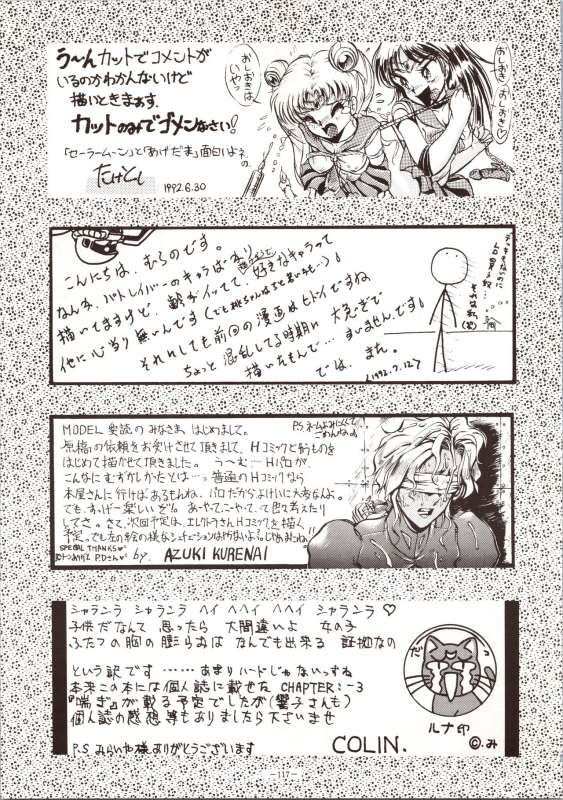 う〜んカットでコメントが
いるのかわかんないけど
描いときまぁす.
カットのみでゴメンなさい!
「セーラームーン」と「あげだま」面白いよネの.
たけとし
1992.6.30
おしおきは
いやっ
おしおき おしおき♡
こんにちは、むらのです。
なんか、パトレイバーのキャラばっかり
描いてますけど、齢がイッてて、好きなキャラって
他に心当り無いんです(でも桃ちゃんはちと若いかも…)。
それにしても前回の漫画はヒドイですね
ちょっと混乱してる時期に大急ぎで
描いたもんで… すいませんです。
では、また。
(1992.7.12)
それは私(笑)
MODEL愛読のみなさま、はじめまして。
原稿の依頼をお受けさせて頂きまして、Hコミックと言うものを
はじめて描かせて頂きました。う〜む…Hパロが、
こんなにむずかしかったとは…っ 普通のHコミックなら
本屋さんに行けばあるもんね、パロだからよけいに大変なんよ。
でも、すっげー楽しいぞ!! あーやって、こーやって、って色々考えたり
してさ。さて、次回予定は、エレクトラさんHコミックを描く
予定。でも左の絵の様なシチュエーションは
SPECIAL THANKS♡
P.Dさん♡ by. AZUKI KURENAI
P.S. ネームよみにくくて
ごめんねっ
シャランラ シャランラ ヘイ ヘヘイ ヘヘイ シャランラ ♡
子供だなんて 思ったら 大間違いよ 女の子
ふたつの胸の膨らみは なんでも出来る 証拠なの
という訳です ……… あまりハードじゃないっすね
本来この本には個人誌に載せた CHAPTER:-3
『喘ぎ』が載る予定でしたが(響子さんも)
個人誌の感想等もありましたら下さいませ
P.S みらいや様ありがとうございます
COLIN.
ルナ印
©み
—117—